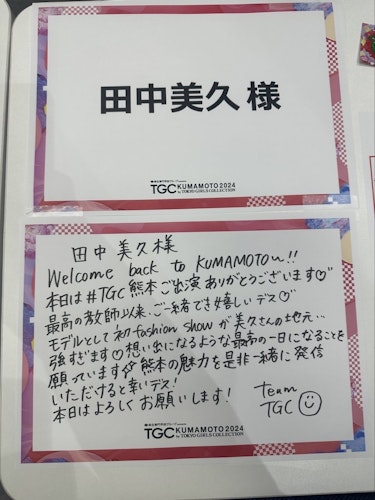 田中美久 様
TGC KUMAMOTO 2024
by TOKYO GIRLS COLLECTION
田中 美久 様
Welcome back to KUMAMOTO〜!!
本日は #TGC 熊本ご出演ありがとうございます♡
最高の教師以来、ご一緒でき嬉しいデス♡
モデルとして初 fashion show が 美久さんの地元…
強すぎます♡ 想い出になるような最高の一日になることを
願っています 熊本の魅力を是非一緒に発信
いただけると幸いデス!
本日はよろしくお願いします!
team
TGC
TGC KUMAMOTO 2024
by TOKYO GIRLS COLLECTION